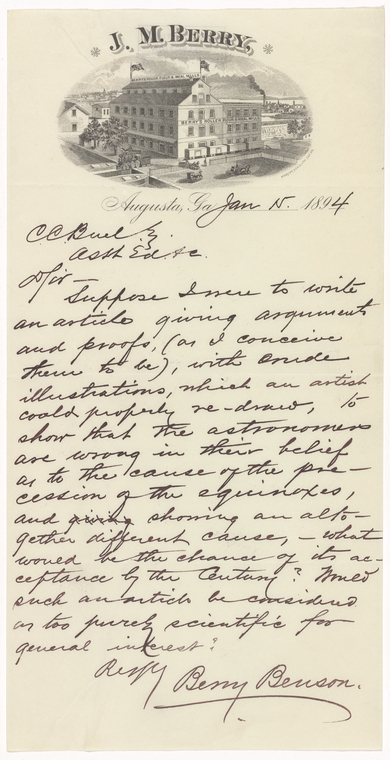 J. M. BERRY,
Augusta, Ga Jan 15. 1894
C C Buel Esq.
Asst. Ed. &c.
D/Sir —
Suppose I were to write
an article giving arguments
and proofs, (as I conceive
them to be), with crude
illustrations, which an artist
could properly re-draw, to
show that the astronomers
are wrong in their belief
as to the cause of the pre-
cession of the equinoxes,
and giving showing an alto-
gether different cause, — what
would be the chance of its ac-
ceptance by the Century? Would
such an article be considered
as too purely scientific for
general interest?
Respy
Berry Benson.